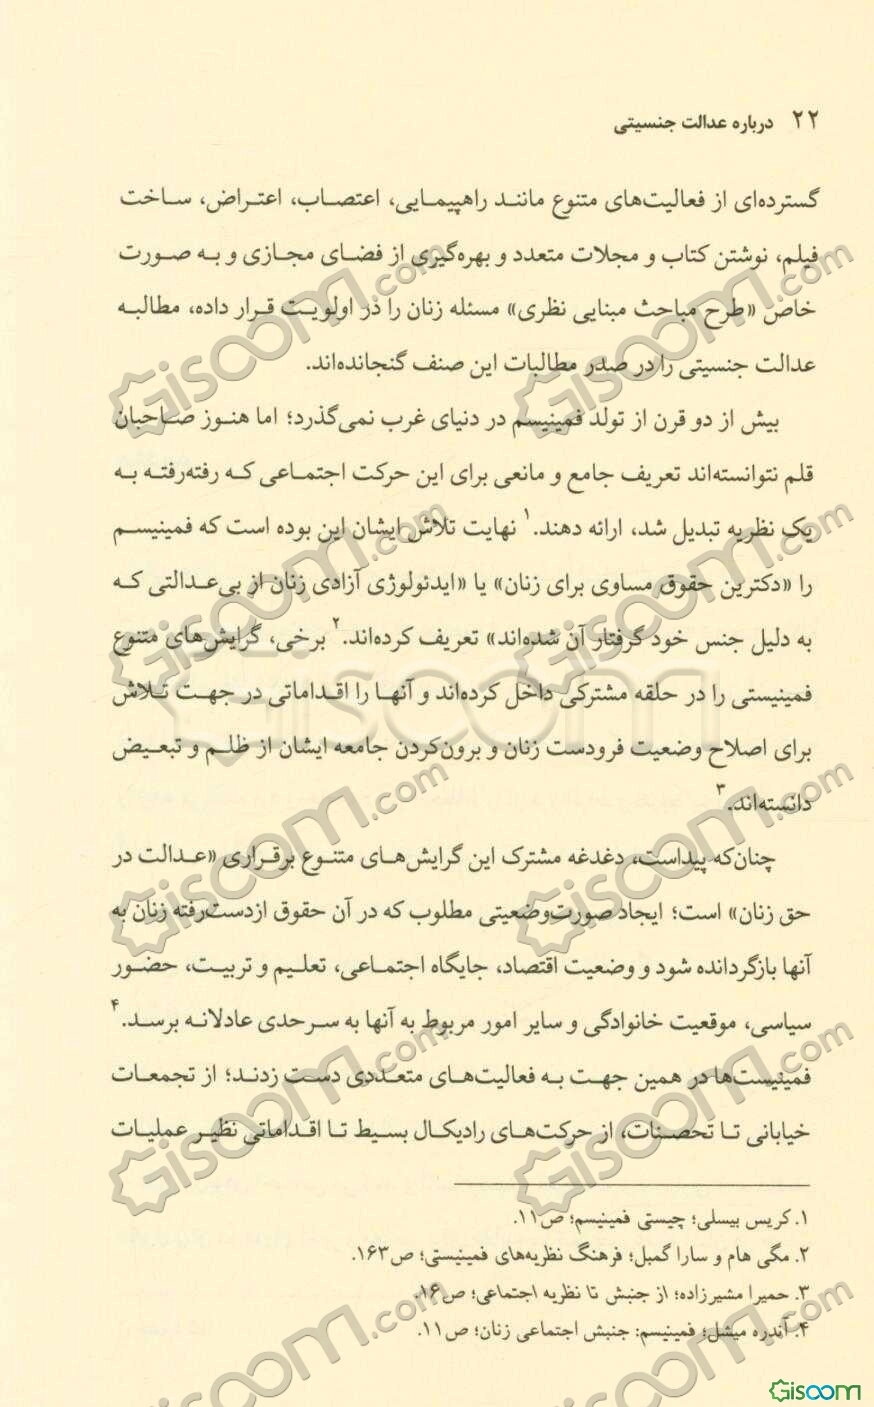 ۲۲ درباره عدالت جنسیتی
گسترده‌ای از فعالیت‌های متنوع مانند راهپیمایی، اعتصاب، اعتراض، ساخت
فیلم، نوشتن کتاب و مجلات متعدد و بهره‌گیری از فضای مجازی و به صورت
خاص «طرح مباحث مبنایی نظری» مسئله زنان را در اولویت قرار داده، مطالبه
عدالت جنسیتی را در صدر مطالبات این صنف گنجانده‌اند.
بیش از دو قرن از تولد فمینیسم در دنیای غرب نمی‌گذرد؛ اما هنوز صاحبان
قلم نتوانسته‌اند تعریف جامع و مانعی برای این حرکت اجتماعی که رفته‌رفته به
یک نظریه تبدیل شد، ارائه دهند.۱ نهایت تلاش ایشان این بوده است که فمینیسم
را «دکترین حقوق مساوی برای زنان» یا «ایدئولوژی آزادی زنان از بی‌عدالتی که
به دلیل جنس خود گرفتار آن شده‌اند» تعریف کرده‌اند.۲ برخی، گرایش‌های متنوع
فمینیستی را در حلقه مشترکی داخل کرده‌اند و آنها را اقداماتی در جهت تلاش
برای اصلاح وضعیت فرودست زنان و برون‌کردن جامعه ایشان از ظلم و تبعیض
دانسته‌اند.۳
چنان‌که پیداست، دغدغه مشترک این گرایش‌های متنوع برقراری «عدالت در
حق زنان» است؛ ایجاد صورت‌وضعیتی مطلوب که در آن حقوق ازدست‌رفته زنان به
آنها بازگردانده شود و وضعیت اقتصاد، جایگاه اجتماعی، تعلیم و تربیت، حضور
سیاسی، موقعیت خانوادگی و سایر امور مربوط به آنها به سرحدی عادلانه برسد.۴
فمینیست‌ها در همین جهت به فعالیت‌های متعددی دست زدند؛ از تجمعات
خیابانی تا تحصنات، از حرکت‌های رادیکال بسیط تا اقداماتی نظیر عملیات
۱. کریس بیسلی؛ چیستی فمینیسم؛ ص۱۱.
۲. مگی هام و سارا گمبل؛ فرهنگ نظریه‌های فمینیستی؛ ص۱۶۳.
۳. حمیرا مشیرزاده؛ از جنبش تا نظریه اجتماعی؛ ص۱۶.
۴. آندره میشل؛ فمینیسم: جنبش اجتماعی زنان؛ ص۱۱.
Giscom